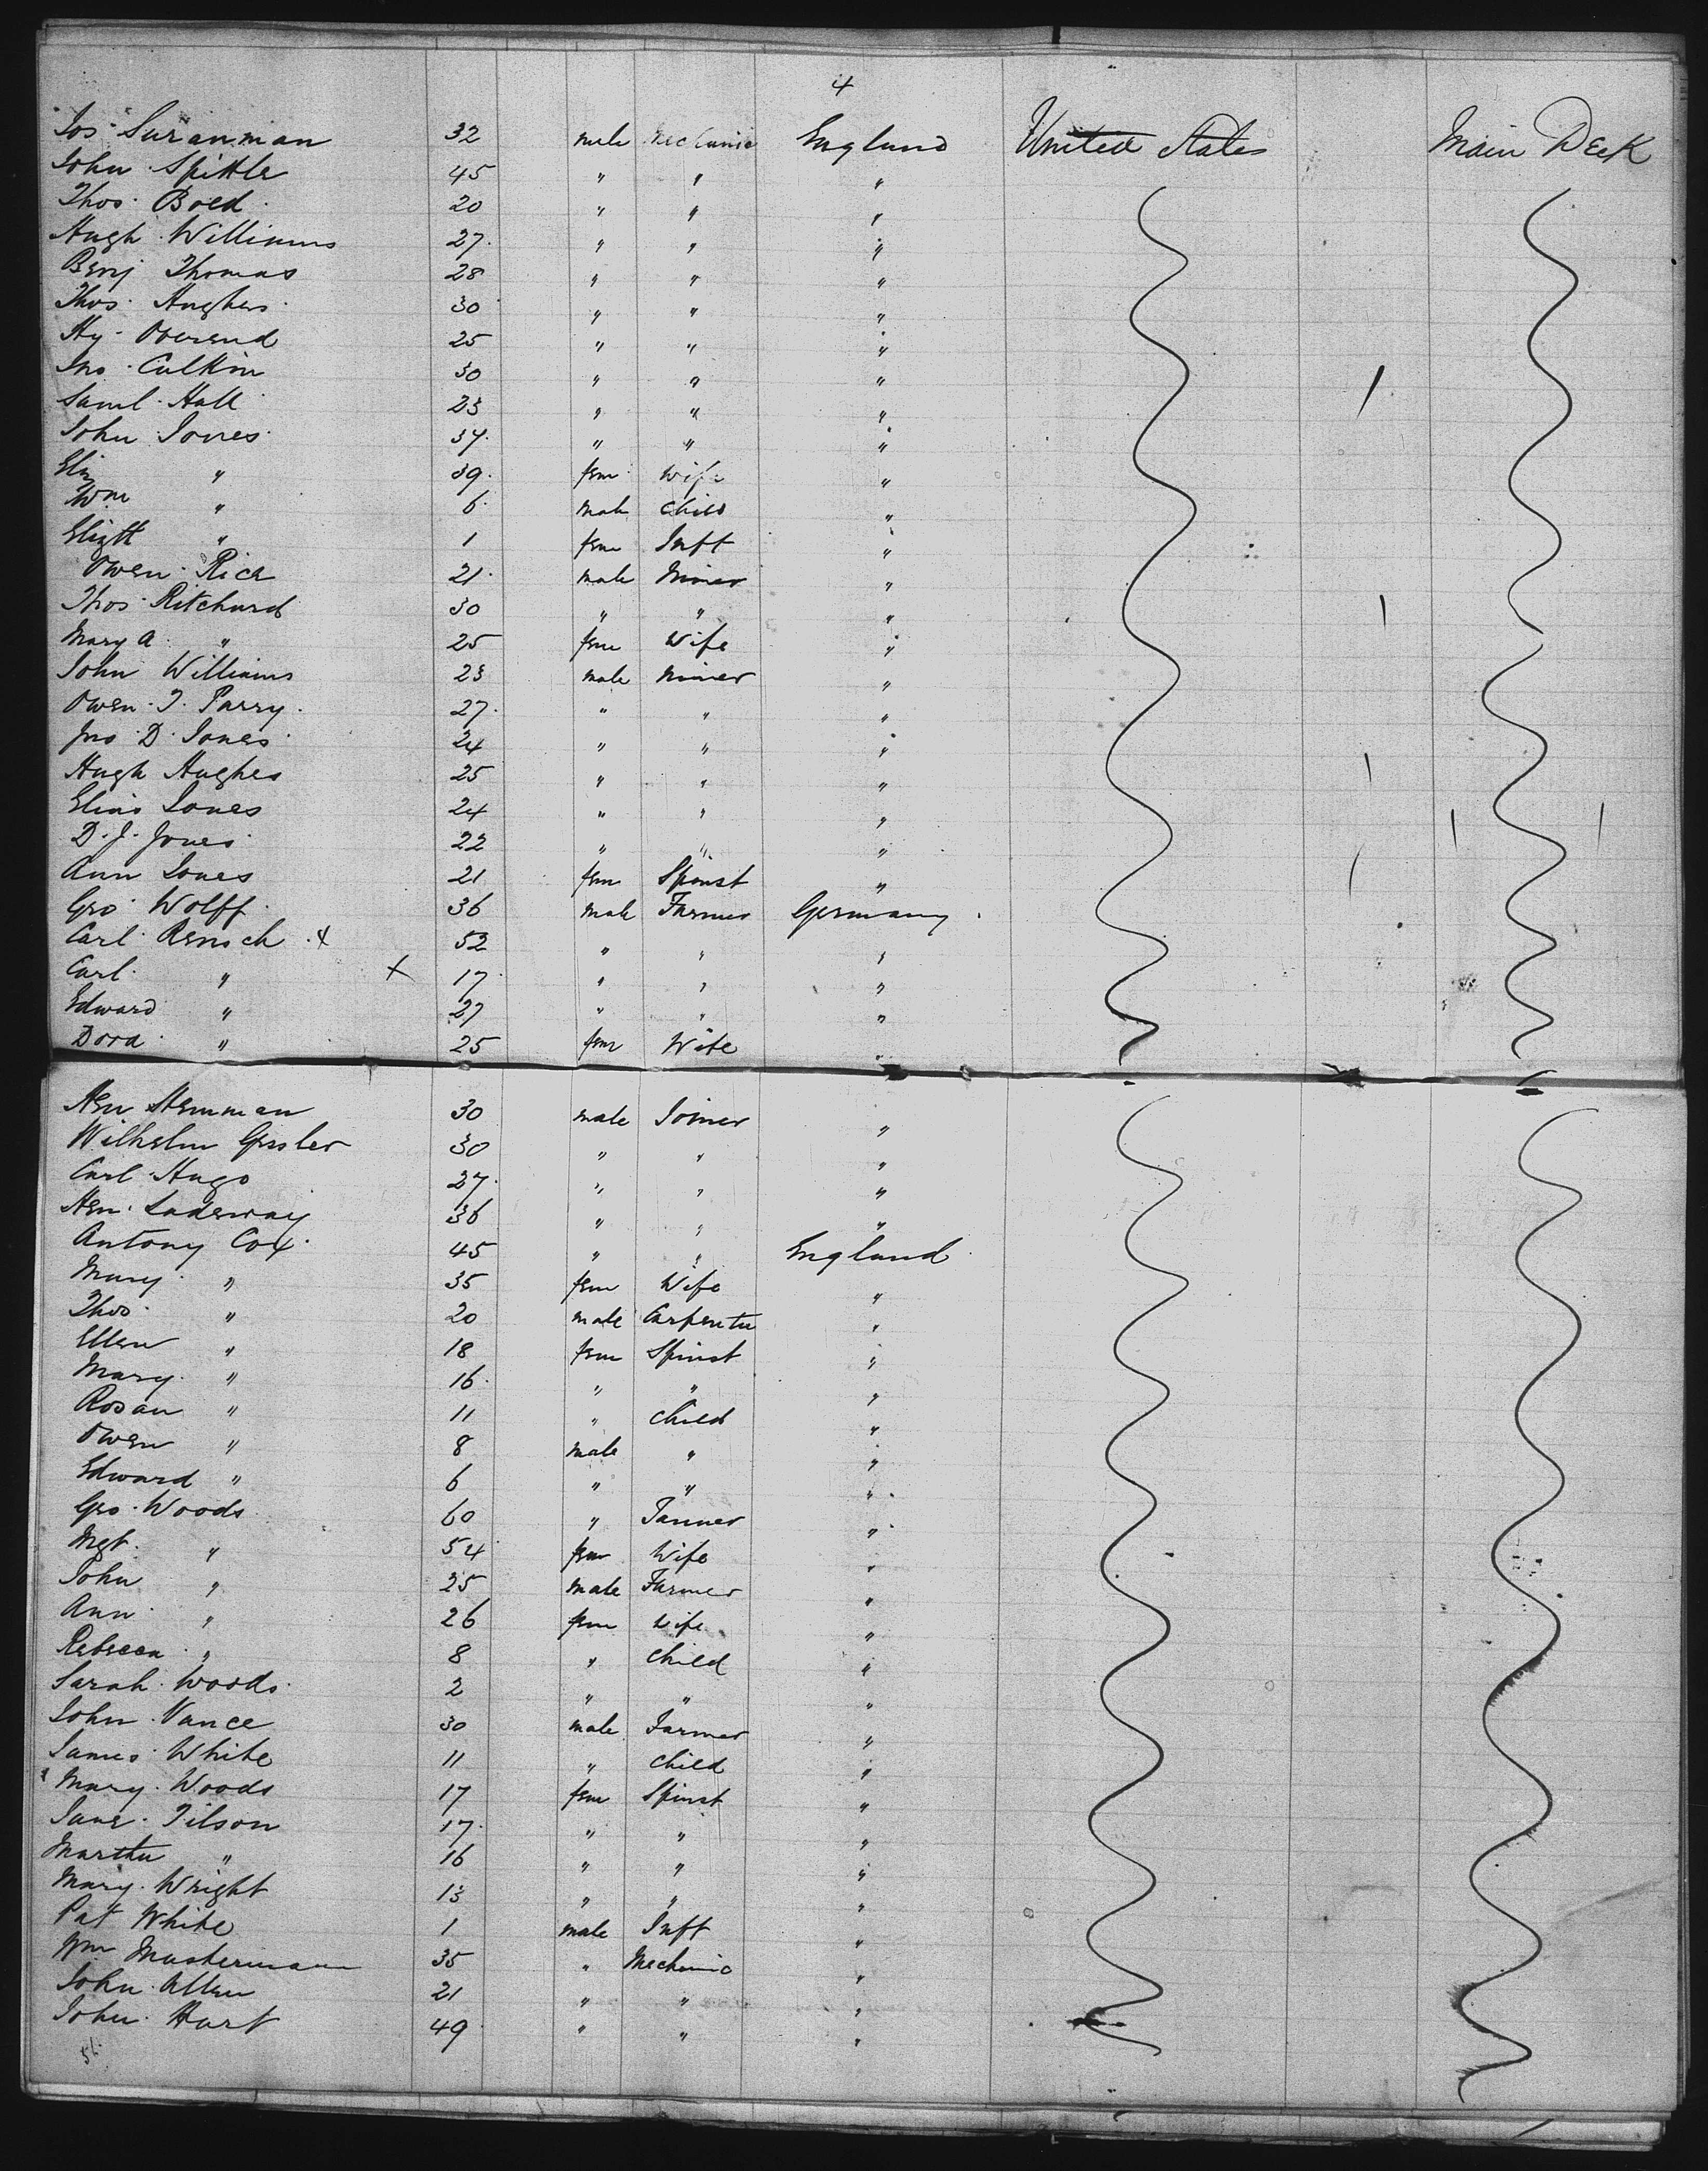 4
Jos Suranman 32 male Mechanic England United States Main Deck
John Spittle 45 " " "
Thos Boed 20 " " "
Hugh Williams 27 " " "
Benj Thomas 28 " " "
Thos Hughes 30 " " "
Hy Overend 25 " " "
Jno Culkin 30 " " "
Saml Hall 23 " " "
John Jones 37 " " "
Eliz " 39 fem Wife "
Wm " 6 male Child "
Elizth " 1 fem Inft "
Owen Rice 21 male Miner "
Thos Ritchards 30 " " "
Mary A " 25 fem Wife "
John Williams 23 male Miner "
Owen T. Parry 27 " " "
Jno D Jones 24 " " "
Hugh Hughes 25 " " "
Elias Jones 24 " " "
D. J. Jones 22 " " "
Ann Jones 21 fem Spinst "
Geo Wolff 36 male Farmer Germany
Carl Rensch x 52 " " "
Carl " x 17 " " "
Edward " 27 " " "
Dora " 25 fem Wife "
Hen Hemman 30 male Joiner "
Wilhelm Gessler 30 " " "
Carl Hugo 27 " " "
Hen Ladeway 36 " " "
Antony Cox 45 " " England
Mary " 35 fem Wife "
Thos " 20 male Carpenter "
Ellen " 18 fem Spinst "
Mary " 16 " " "
Rosan " 11 " Child "
Owen " 8 male " "
Edward " 6 " " "
Geo Woods 60 " Farmer "
Mgt " 54 fem Wife "
John " 25 male Farmer "
Ann " 26 fem Wife "
Rebecca " 8 " Child "
Sarah Woods 2 " " "
John Vance 30 male Farmer "
James White 11 " Child "
Mary Woods 17 fem Spinst "
Jane Tilson 17 " " "
Martha " 16 " " "
Mary Wright 13 " " "
Pat White 1 male Inft "
Wm Musterman 35 " Mechanic "
John Allen 21 " " "
John Hart 49 " " "
56